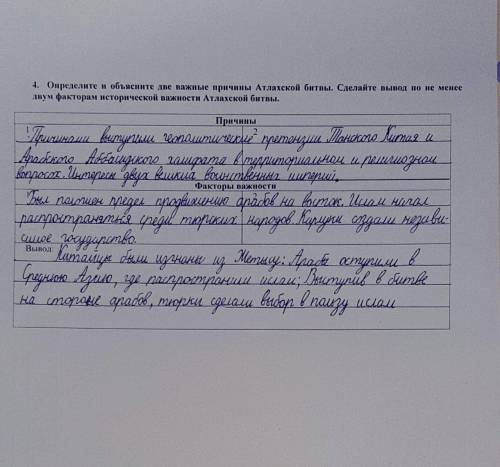 4. Определите и объясните две важные причины Атлахской битвы. Сделайте вывод по не менее
двум факторам исторической важности Атлахской битвы.
Причины
1 Причинами выступили геополитические 2 претензии Танского Китая и
Арабского Аббасидского халифата в территориальном и религиозном
вопросах. Интересы двух великих воинственных империй.
Факторы важности
Был положен предел продвижению арабов на восток. Ислам начал
распространяться среди тюркских народов. Карлуки создали незави-
симое государство.
Вывод: Китайцы были изгнаны из Жетысу: Арабы отступили в
Среднюю Азию, где распространили ислам; Выступив в битве
на стороне арабов, тюрки сделали выбор в пользу ислам